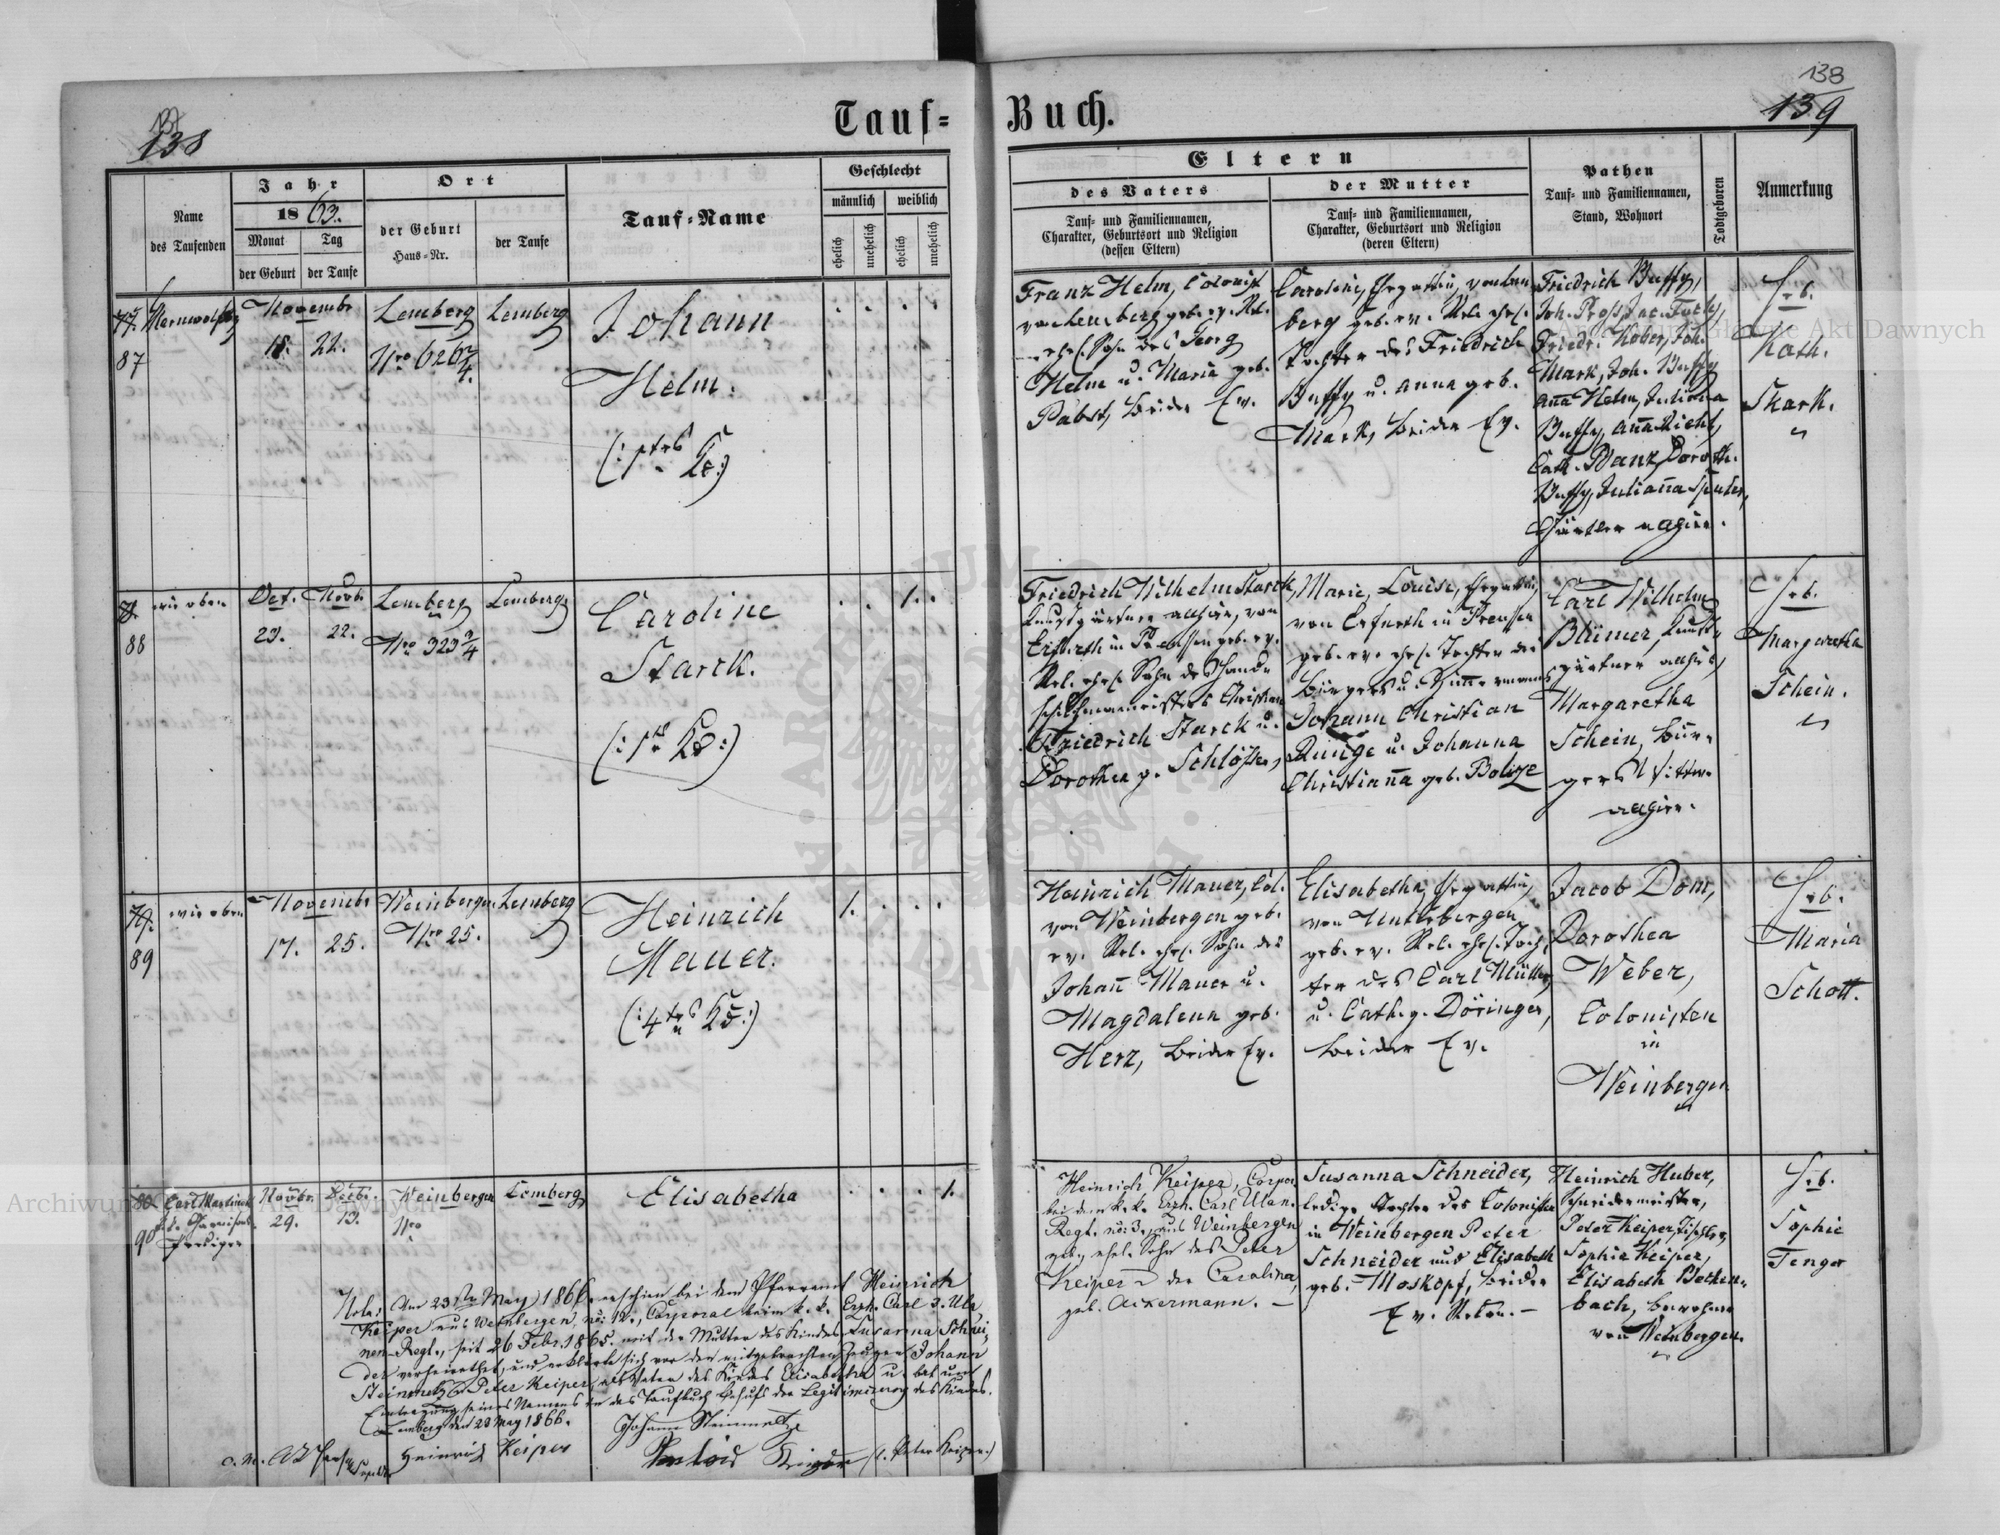 138
138
139
Tauf-Buch.
Name
des Taufenden
Jahr
1863.
Monat
Tag
der Geburt
der Taufe
Ort
der Geburt
Haus-Nr.
der Taufe
Tauf-Name
Geschlecht
männlich
weiblich
ehelich
unehelich
ehelich
unehelich
Eltern
des Vaters
Tauf- und Familiennamen,
Charakter, Geburtsort und Religion
(dessen Eltern)
der Mutter
Tauf- und Familiennamen,
Charakter, Geburtsort und Religion
(deren Eltern)
Pathen
Tauf- und Familiennamen,
Stand, Wohnort
Todtgeboren
Anmerkung
77.
87
Novembr
18. 22.
Lemberg
Nro 626 2/4.
Lemberg
Johann
Helm.
(: 1tes Kd :)
Franz Helm, Colonist
von Lemberg geb. ev. Rel.
ehel. Sohn des Georg
Helm u. Maria geb.
Pabst, beide Ev.
Caroline, Ehegattin, von Lem
berg geb. ev. Rel. ehel.
Tochter des Friedrich
Buffy u. Anna geb.
Mark, beide Ev.
Friedrich Buffy,
Friedr. Kober, Joh.
Mark, Joh. Buffy
Anna Helm, Juliana
Buffy, Anna
Cath. Doroth.
Buffy, Julianna
Gärtler
Heb.
Kath.
Skark.
78.
88
wie oben
Oct. Novb.
23. 22.
Lemberg
Nro 323 2/4
Lemberg
Caroline
Starck.
(: 1tes Kd :)
Friedrich Wilhelm Starck,
Kunstgärtner allhier, von
Erfurth in Preussen geb. ev.
Rel. ehel. Sohn des
Christian
Friedrich Starck u.
Dorothea g. Schlösser,
Marie, Louise, Ehegattin,
von Erfurth in Preussen
geb. ev. ehel. Tochter des
Bürgers u. Zimmermanns
Johann Christian
Runge u. Johanna
Christianna geb.
Carl Wilhelm
Blümer, Kunst-
gärtner allhier,
Margaretha
Schein, Bür-
gers Wittwe
allhier.
Heb.
Margaretha
Schein.
79.
89
wie oben
Novembr
17. 25.
Weinbergen
Nro 25.
Lemberg
Heinrich
Mauer.
(: 4tes Kd :)
1.
Heinrich Mauer, Col.
von Weinbergen geb.
ev. Rel. ehel. Sohn des
Johann Mauer u.
Magdalena geb.
Herz, beide Ev.
Elisabetha, Ehegattin,
von Unterbergen
geb. ev. Rel. ehel. Toch-
ter des Carl Müller
u. Cath. g. Döringer,
beide Ev.
Jacob Dom,
Dorothea
Weber,
Colonisten
in
Weinbergen
Heb.
Maria
Schott.
80
90
Carl Martinek
k.k. Garnisons-
Prediger
Novbr. Decbr.
29. 13.
Weinbergen
Nro
Lemberg
Elisabetha
1.
Heinrich Keiper, Corpor.
bei dem k.k. Erzh. Carl Ulan.
Regt. No: 3, aus Weinbergen
geb. ehel. Sohn des Peter
Keiper u. der Carolina,
geb. Ackermann. —
Susanna Schneider,
ledige Tochter des Colonisten
in Weinbergen Peter
Schneider und Elisabeth
geb. Moskopf, beide
Ev. Relon. —
Heinrich Huber,
Schneidermeister,
Peter Keiper, Tischler,
Sophia Keiper,
Elisabeth Bechen-
bach, Bewohner
von Weinbergen.
Heb.
Sophie
Tenger
Nota: Am 23ten May 1866 erschien bei dem Pfarramt Heinrich
Keiper aus Weinbergen, No: 12, Corporal beim k.k. Erzh. Carl 3. Ula
nen Regt., seit 26 Febr. 1865 mit der Mutter des Kindes Susanna Schnei
der verheirathet, und erklärte sich vor den mitgebrachten Zeugen Johann
Steinmetz u Peter Keiper, als Vater des Kindes Elisabetha u. bat um
Eintragung seines Namens in das Taufbuch behufs der Legitimierung des Kindes.
Lemberg den 23 May 1866.
Johann Steinmetz
Heinrich Keiper
(: Peter Keiper :)
Archiwum Główne Akt Dawnych